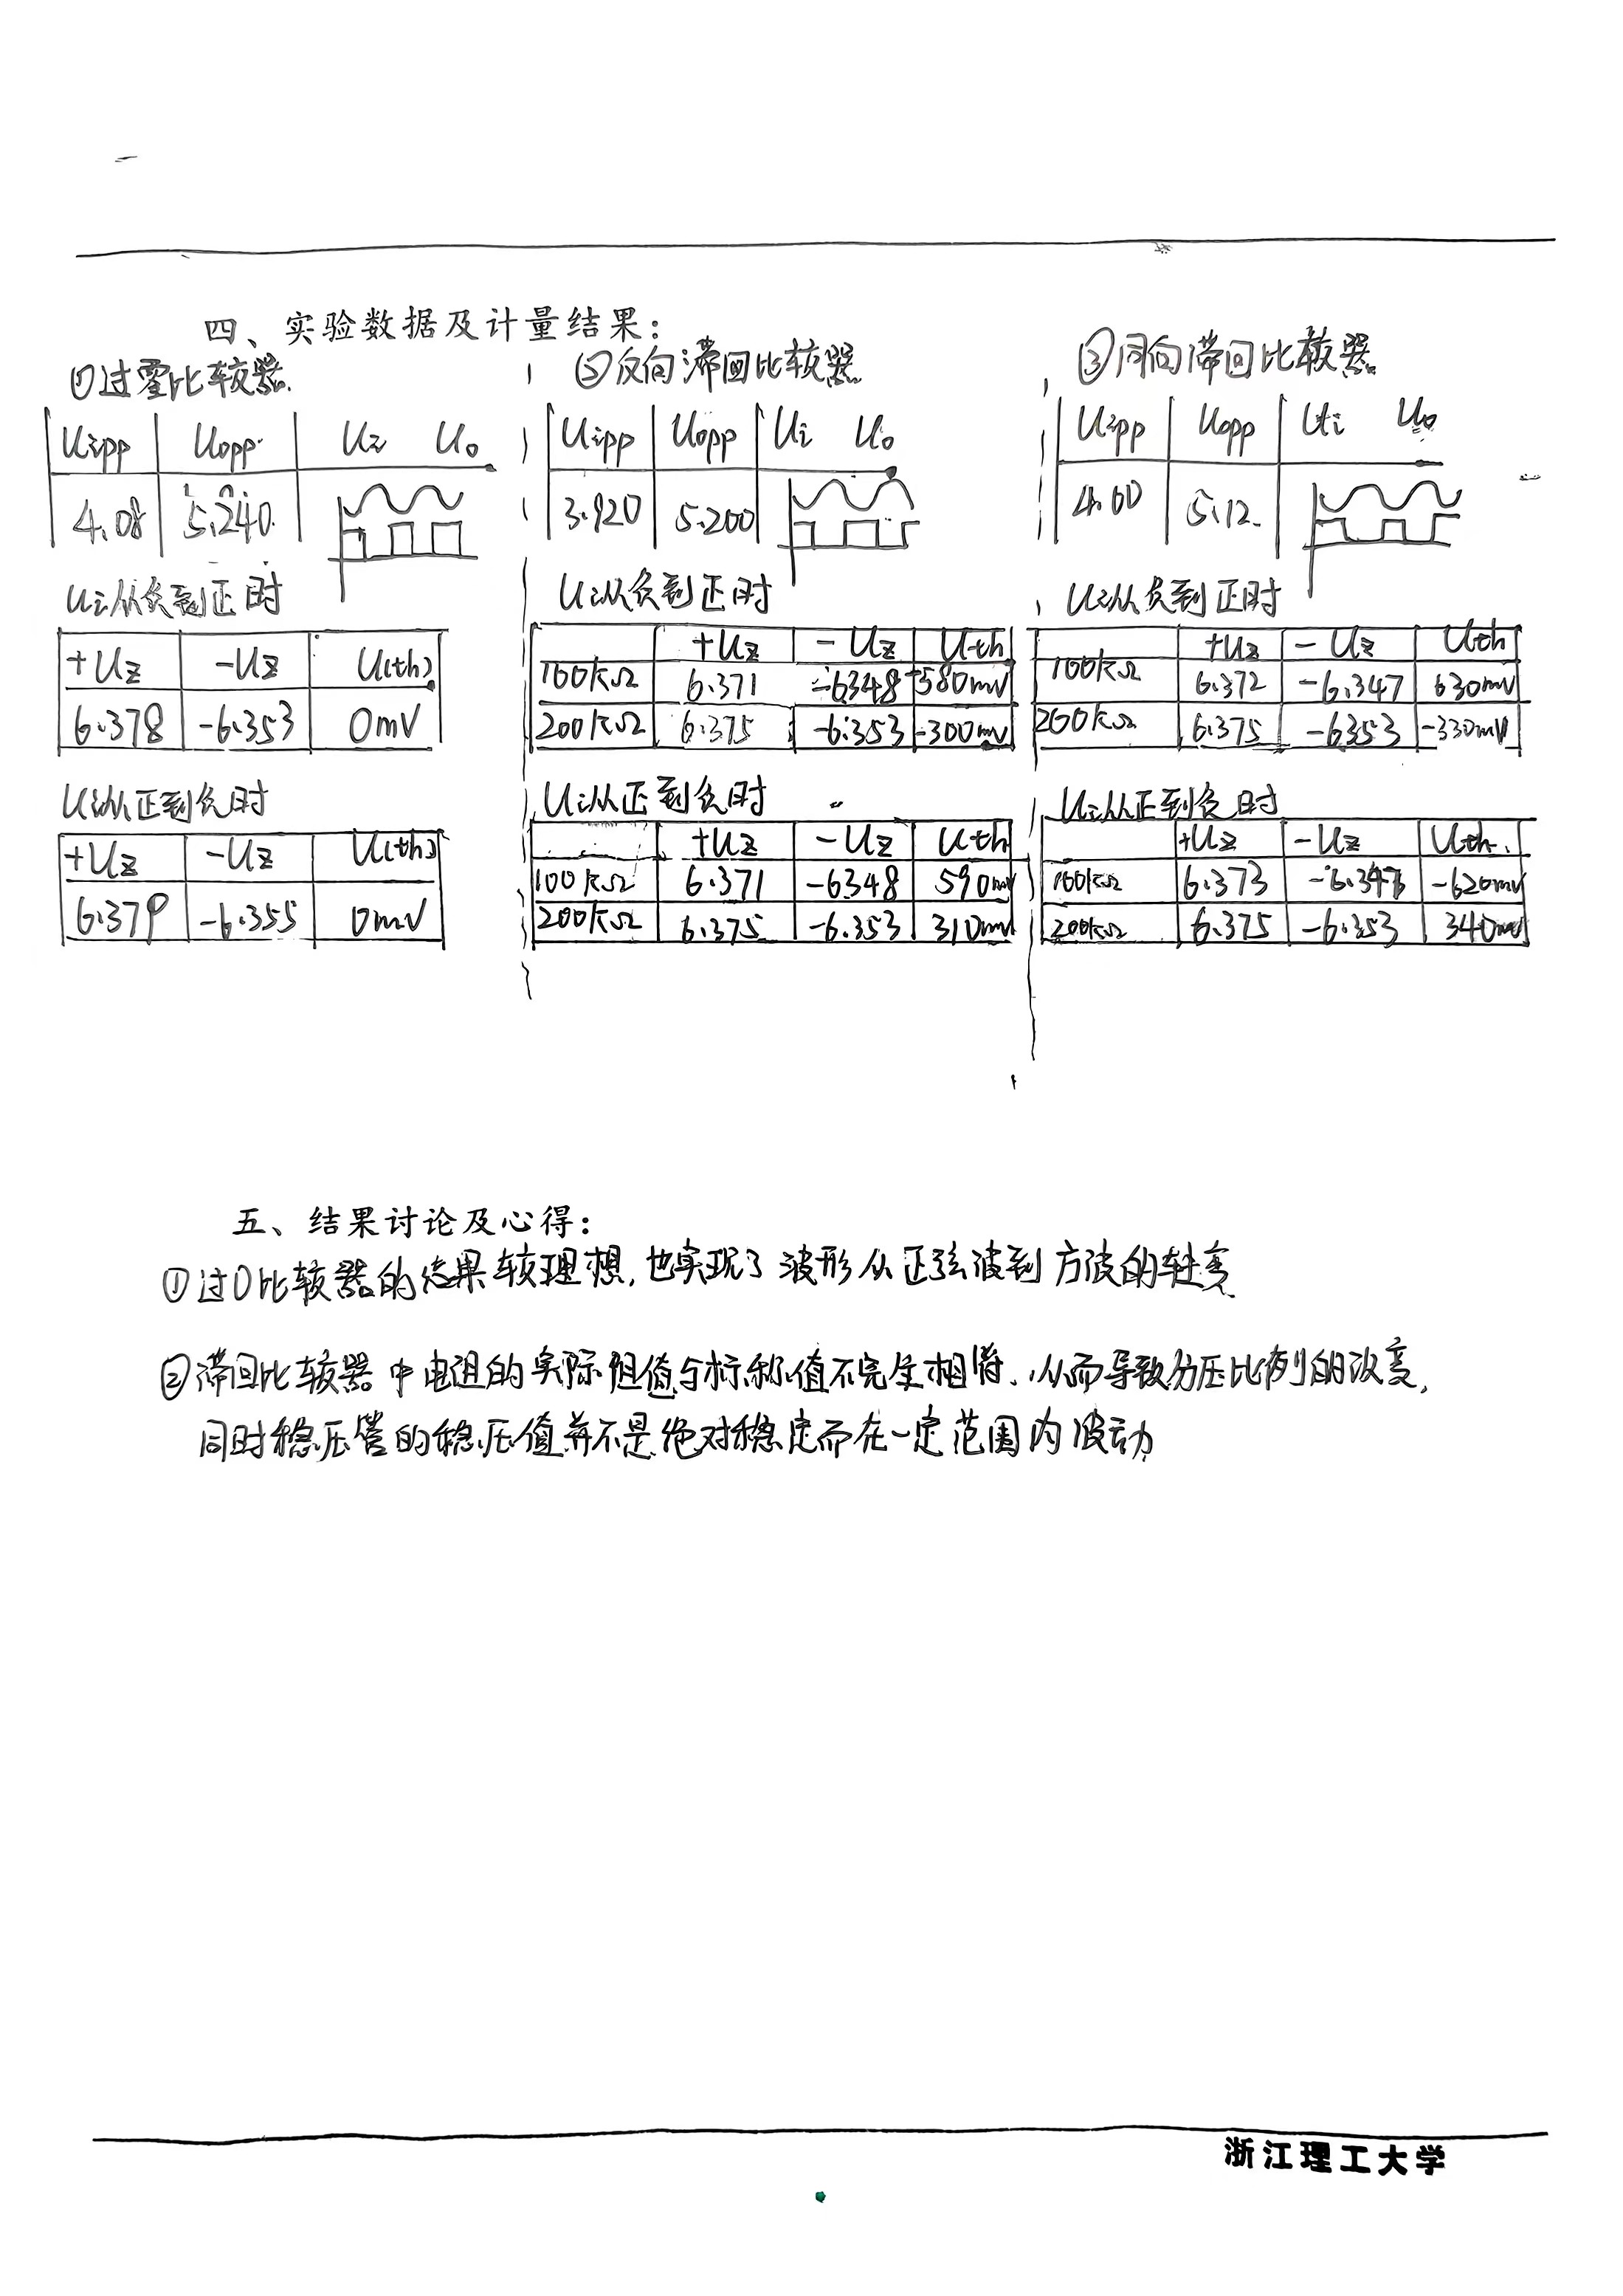 四、实验数据及计量结果：
①过零比较器.
Uipp Uopp Ui Uo
4.08 5.240
Ui从负到正时
+Uz -Uz U(th)
6.378 -6.353 0mV
Ui从正到负时
+Uz -Uz U(th)
6.379 -6.355 0mV
②反向滞回比较器
Uipp Uopp Ui Uo
3.920 5.200
Ui从负到正时
+Uz -Uz Uth
100kΩ 6.371 -6348 -580mV
200kΩ 6.375 -6.353 -300mV
Ui从正到负时
+Uz -Uz Uth
100kΩ 6.371 -6348 590mV
200kΩ 6.375 -6.353 310mV
③同向滞回比较器
Uipp Uopp Ui Uo
4.00 5.12.
Ui从负到正时
+Uz -Uz Uth
100kΩ 6.372 -6.347 630mV
200kΩ 6.375 -6353 -330mV
Ui从正到负时
+Uz -Uz Uth.
100kΩ 6.373 -6.347 -620mV
200kΩ 6.375 -6.353 340mV
五、结果讨论及心得：
①过0比较器的结果较理想，也实现了波形从正弦波到方波的转变
②滞回比较器中电阻的实际阻值与标称值不完全相符、从而导致分压比例的改变，
同时稳压管的稳压值并不是绝对稳定而在一定范围内波动
浙江理工大学